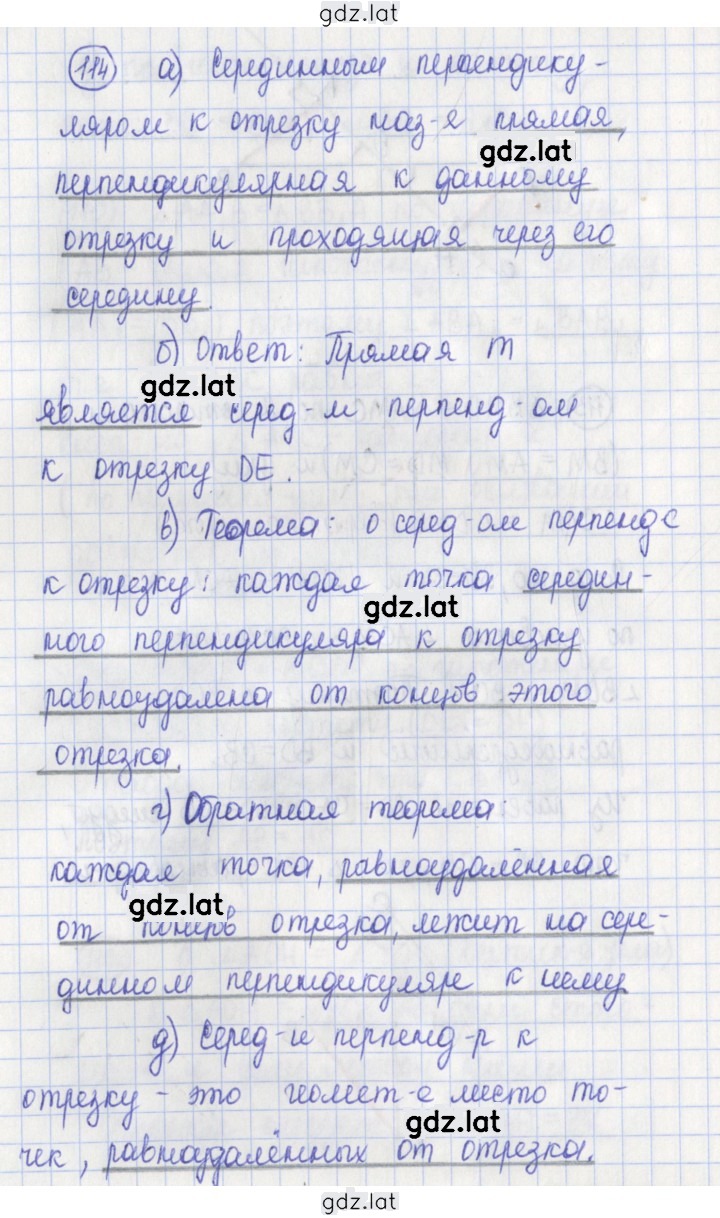 gdz.lat
114 а) Серединным перпендику-
ляром к отрезку наз-я прямая,
gdz.lat
перпендикулярная к данному
отрезку и проходящая через его
середину.
б) Ответ: Прямая m
gdz.lat
является серед-м перпенд-ом
к отрезку DE.
в) Теорема: о серед-ом перпенд-е
к отрезку: каждая точка середин-
gdz.lat
ного перпендикуляра к отрезку
равноудалена от концов этого
отрезка.
г) Обратная теорема:
каждая точка, равноудалённая
gdz.lat
от концов отрезка, лежит на сере-
динном перпендикуляре к нему
д) Серед-й перпенд-р к
отрезку - это геомет-е место то-
gdz.lat
чек, равноудалённых от отрезка.
gdz.lat